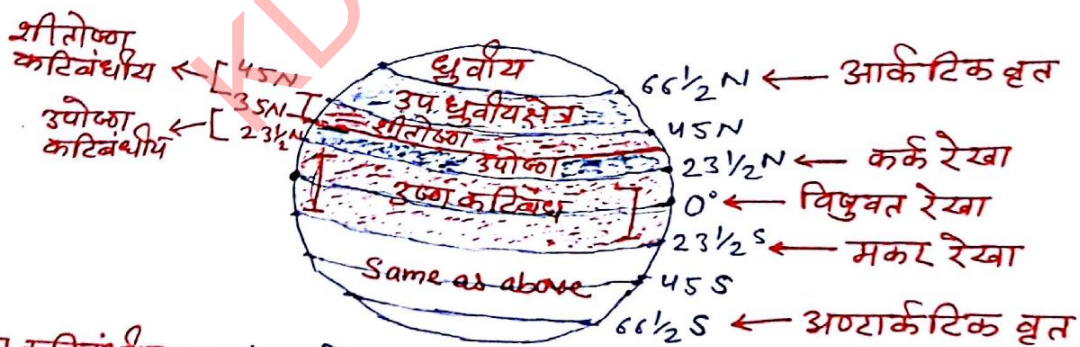 शीतोष्ण
कटिबंधीय ← [ 45N
35N
उपोष्ण
कटिबंधीय ← [ 23½N
ध्रुवीय
उप ध्रुवीय क्षेत्र
शीतोष्ण
उपोष्ण
उष्ण कटिबंध
Same as above
66½ N ← आर्कटिक वृत
45N
23½N ← कर्क रेखा
0° ← विषुवत रेखा
23½ S ← मकर रेखा
45 S
66½ S ← अण्टार्कटिक वृत
KD